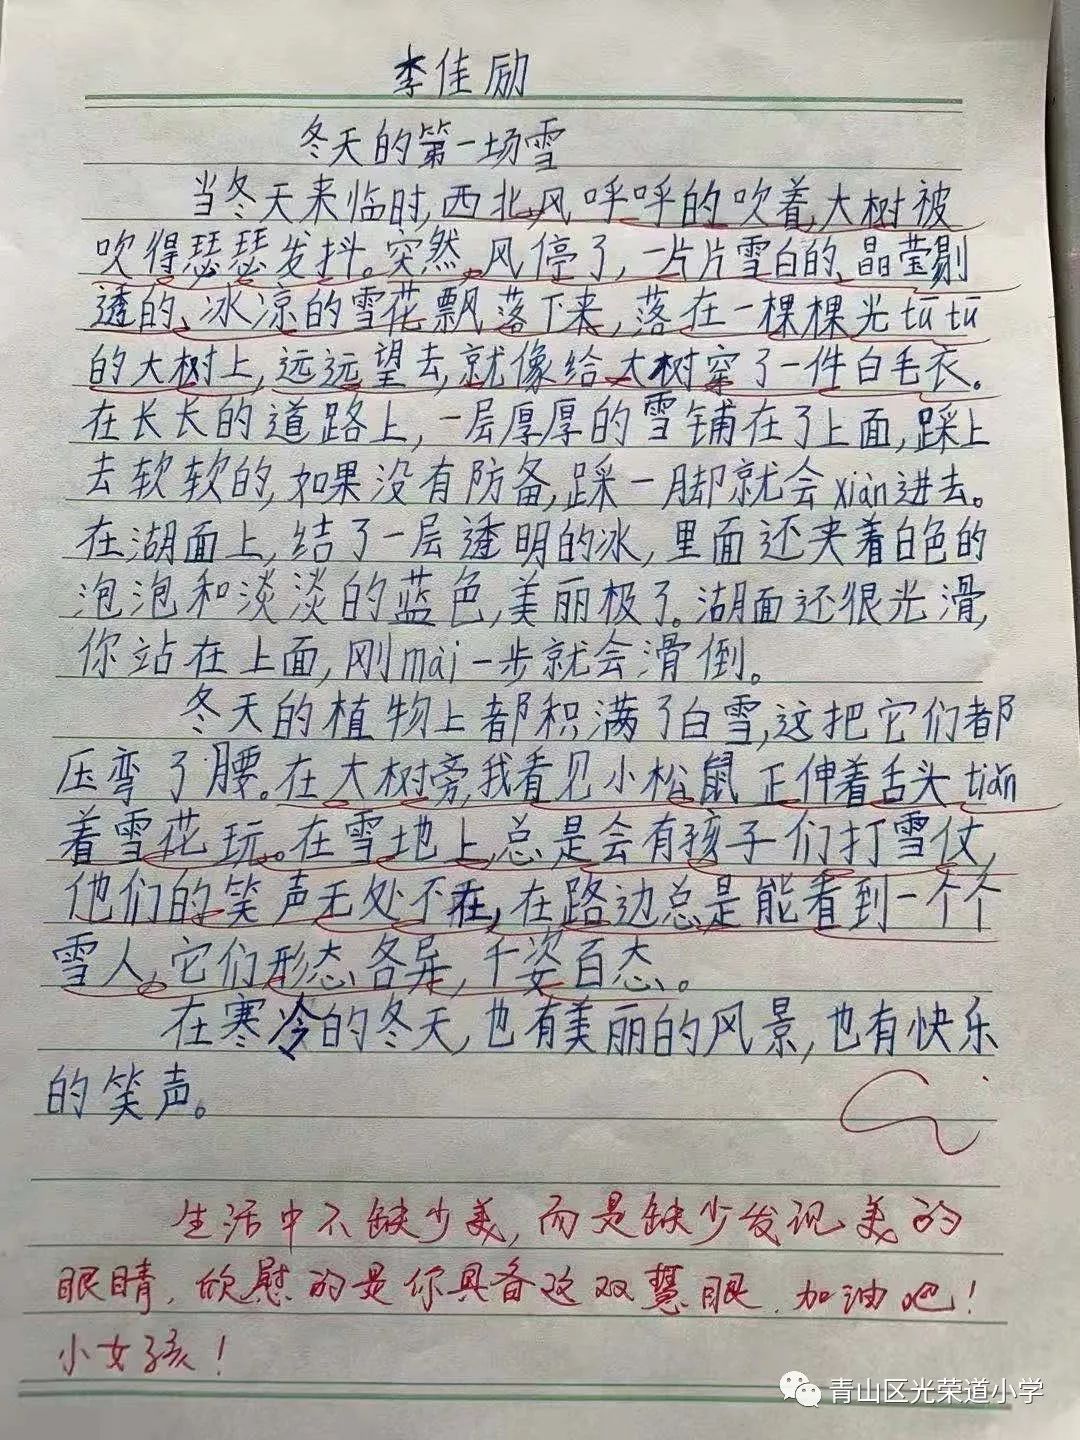 李佳励
冬天的第一场雪
当冬天来临时,西北风呼呼的吹着,大树被
吹得瑟瑟发抖。突然,风停了,一片片雪白的、晶莹剔
透的、冰凉的雪花飘落下来,落在一棵棵光tū tū
的大树上,远远望去,就像给大树穿了一件白毛衣。
在长长的道路上,一层厚厚的雪铺在了上面,踩上
去软软的,如果没有防备,踩一脚就会xiàn进去。
在湖面上,结了一层透明的冰,里面还夹着白色的
泡泡和淡淡的蓝色,美丽极了。湖面还很光滑,
你站在上面,刚mài一步就会滑倒。
冬天的植物上都积满了白雪,这把它们都
压弯了腰。在大树旁,我看见小松鼠正伸着舌头tiǎn
着雪花玩。在雪地上,总是会有孩子们打雪仗,
他们的笑声无处不在,在路边总是能看到一个个
雪人,它们形态各异,千姿百态。
在寒冷的冬天,也有美丽的风景,也有快乐
的笑声。
生活中不缺少美,而是缺少发现美的
眼睛,欣慰的是你具备这双慧眼,加油吧!
小女孩!
青山区光荣道小学